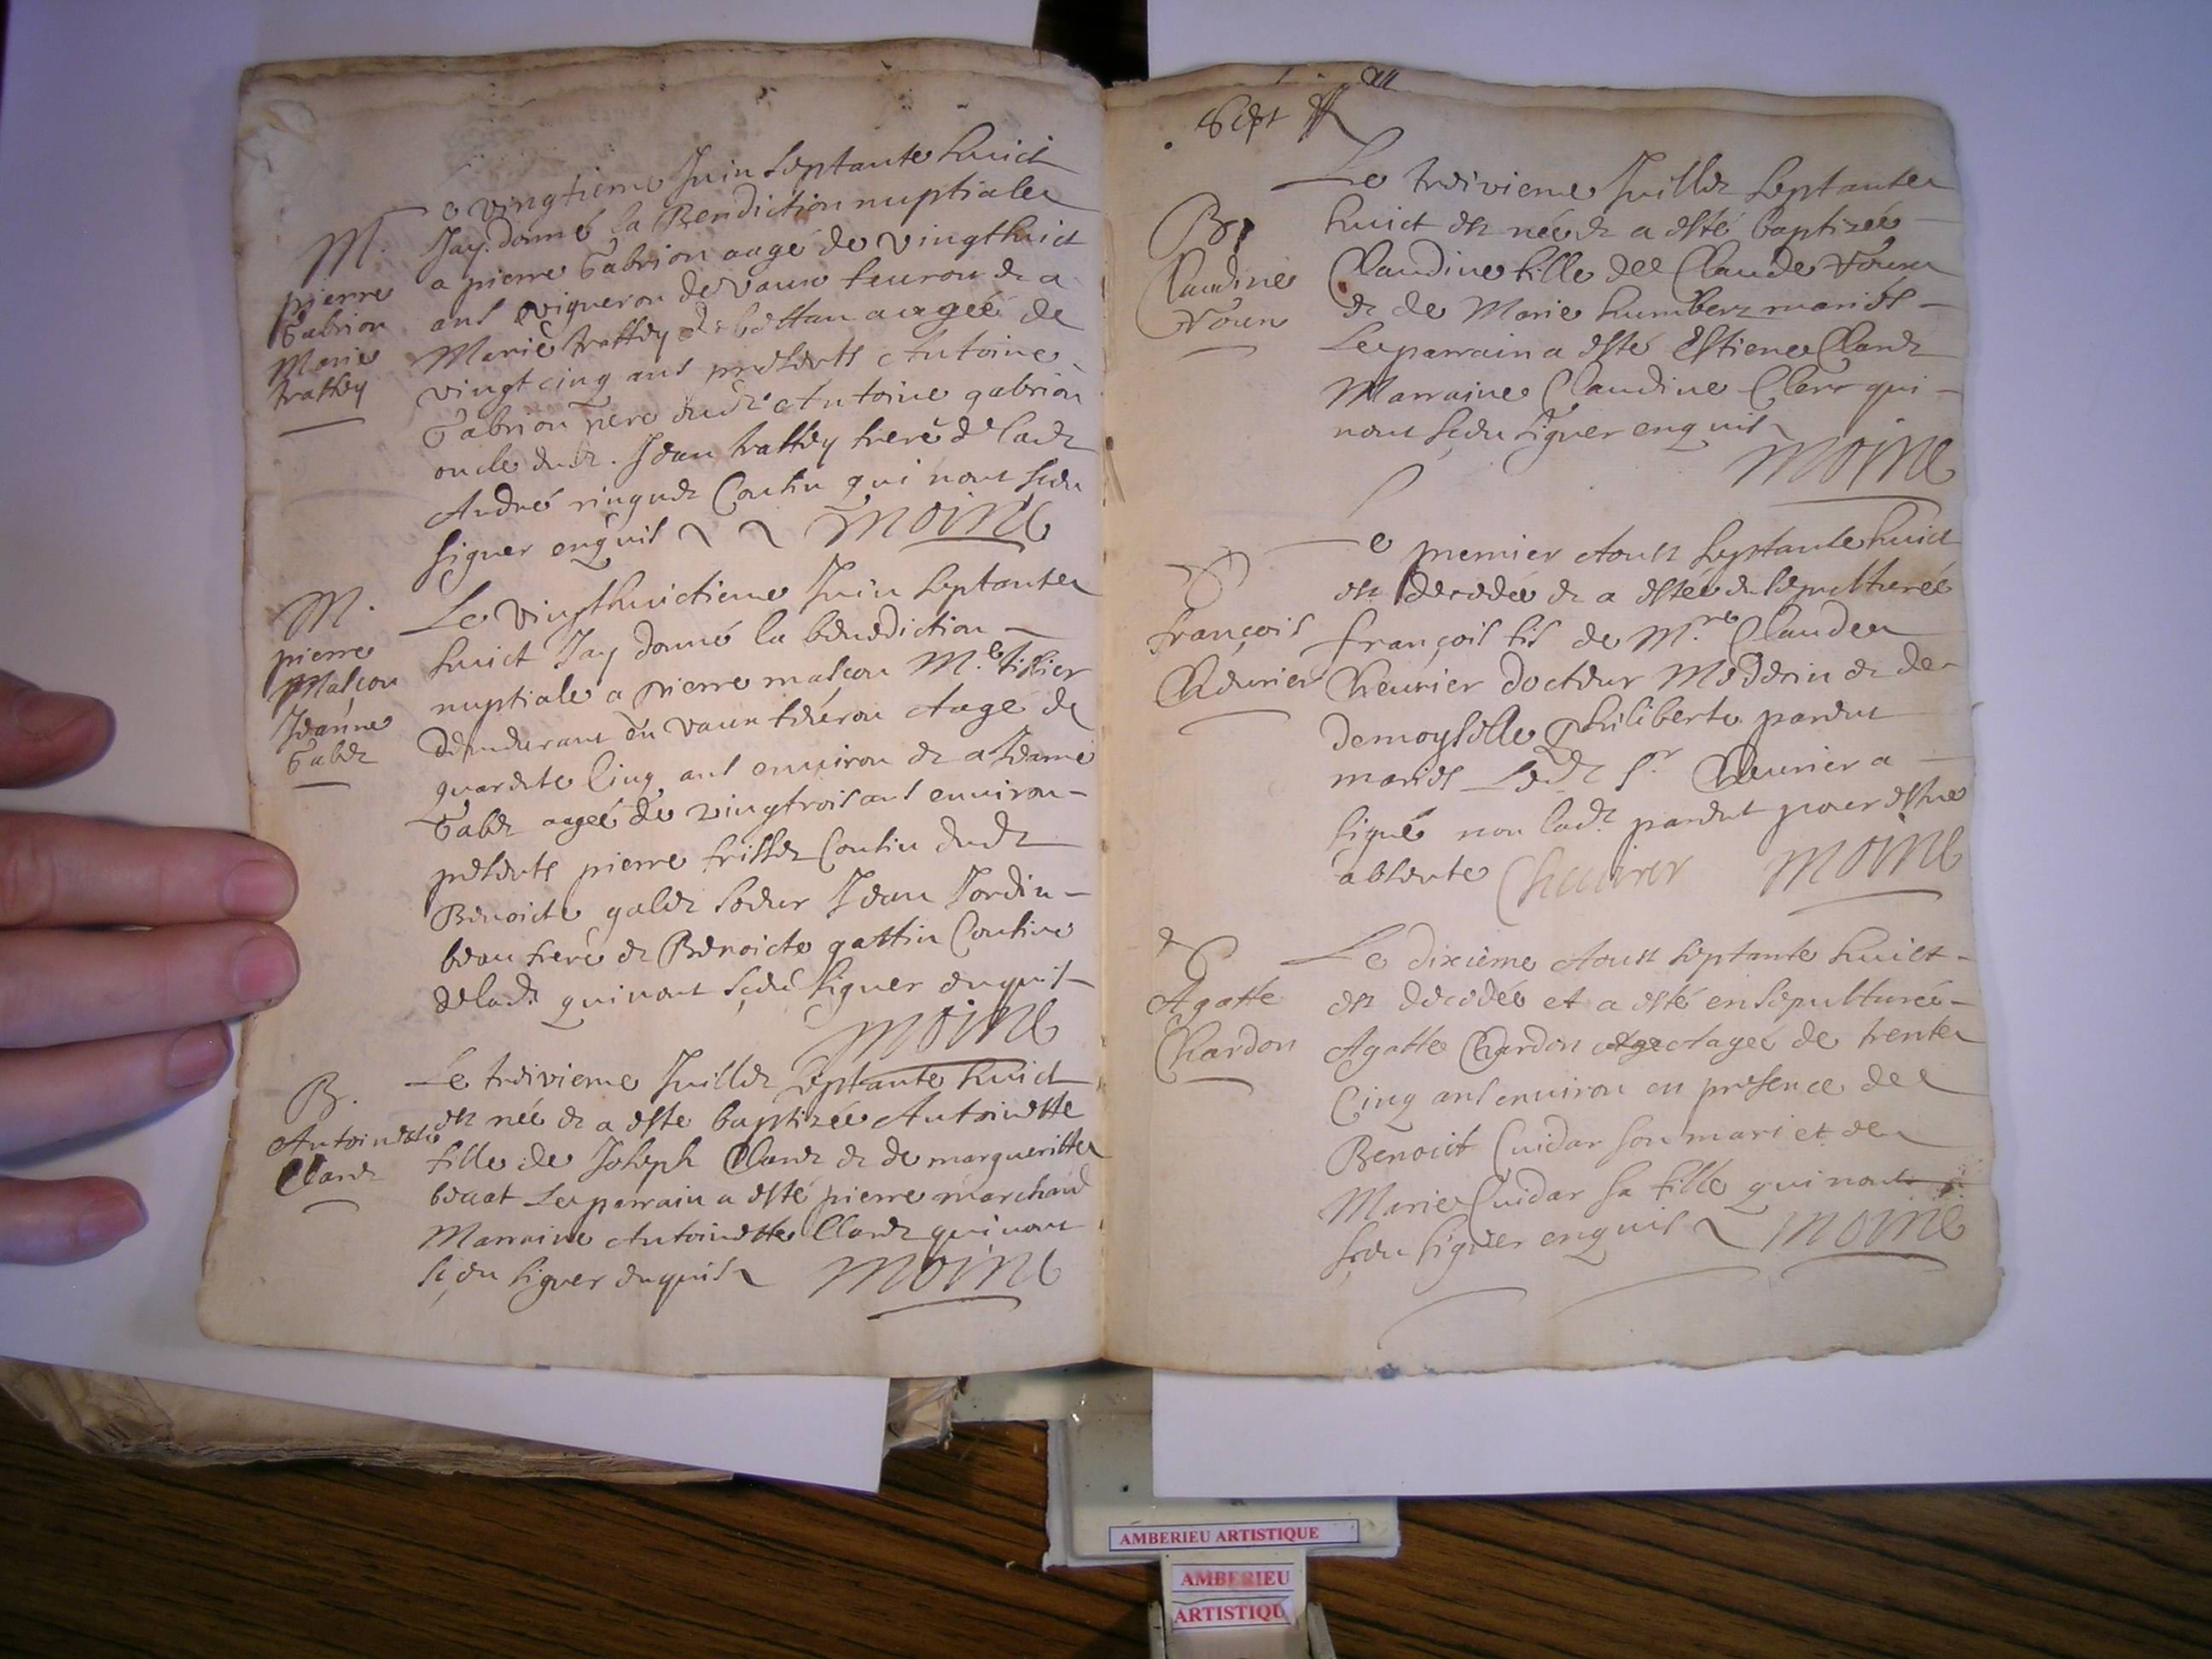 M.
pierre
Gabrion
Marie
trattey
Le vingtieme Juin Septante huict
Jay donné la Benediction nuptiale
a pierre Gabrion aagé de vingthuict
ans vigneron de vaux feurou et a
Marie trattey de bettan aagée de
vingt cinq ans presents Antoine
Gabrion pere dudt Antoine gabrion
oncle dudt. Jean trattey frere de ladt
André ringuet Cousin qui nont sceu
signer enquis moine
M.
pierre
Masçon
Jeanne
Gabet
Le vingthuictieme Juin septante
huict Jay donné la benediction
nuptiale a pierre masçon M.e tissier
demeurant en vaux feurou Aagé de
quarente cinq ans environ et a Jeanne
Gabet agée de vingtrois ans environ
presents pierre frisset Cousin dudt
Benoicte gabet soeur Jean Jordin
beau frere et Benoicte gattin Cousine
de ladt qui nont sceu signer enquis
moine
B.
Antoinette
Claret
Le treizieme Juillet septante huict
est née et a esté baptizée Antoinette
fille de Joseph Claret et de margueritte
beaat Le parrain a esté pierre marchand
Marraine Antoinette Claret qui nont
sceu signer enquis moine
Sept
B.
Claudine
Le treizieme Juillet septante
huict est née et a esté baptizée
Claudine fille de Claude
et de Marie humbert mariés
Le parrain a esté Estiene Claret
Marraine Claudine Clerc qui
nont sceu signer enquis
moine
françois
Cheurier
Le premier Aoust septante huict
est decedée et a estée ensepulturée
françois fis de M.re Claude
Cheurier docteur Medecin et de
demoyselle philiberte pardut
mariés Ledt Sr. Cheurier a
signé non ladt. pardut pour estre
absente Cheurier moine
Agatte
Chardon
Le dixieme Aoust septante huict
est decedée et a esté ensepulturée
Agatte Chardon Aagée de trente
Cinq ans environ en presence de
Benoict Cuidar son mari et de
Marie Cuidar sa fille qui nont
sceu signer enquis moine
AMBERIEU ARTISTIQUE
AMBERIEU
ARTISTIQU